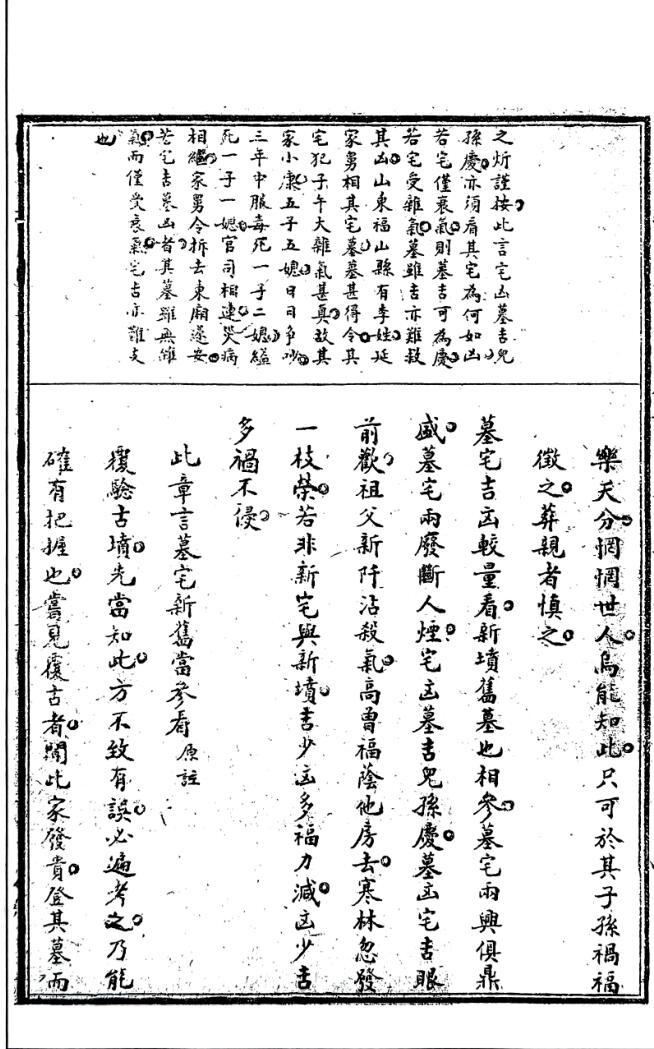 之炘謹按此言宅凶墓吉兒
孫慶亦須看其宅為何如凶
若宅僅衰氣則墓吉可為慶
若宅受雜氣墓雖吉亦難救
其凶山東福山縣有李姓延
家舅相其宅墓墓甚得令其
宅犯子午大雜氣甚真故其
家小康五子五媳日日爭吵
三年中服毒死一子二媳縊
死一子一媳官司相連哭病
相繼家舅令拆去東廂遂安
若宅吉墓凶者其墓雖無雜
氣而僅受衰氣宅吉亦難支
也
樂天分惘惘世人烏能知此只可於其子孫禍福
徵之葬親者慎之
墓宅吉凶較量看新墳舊墓也相參墓宅兩興俱鼎
盛墓宅兩廢斷人煙宅凶墓吉兒孫慶墓凶宅吉眼
前歡祖父新阡沾殺氣高曾福蔭他房去寒林忽發
一枝榮若非新宅與新墳吉少凶多福力減凶少吉
多禍不侵
此章言墓宅新舊當參看原註
覆驗古墳先當知此方不致有誤必遍考之乃能
確有把握也嘗見覆古者聞此家發貴登其墓而